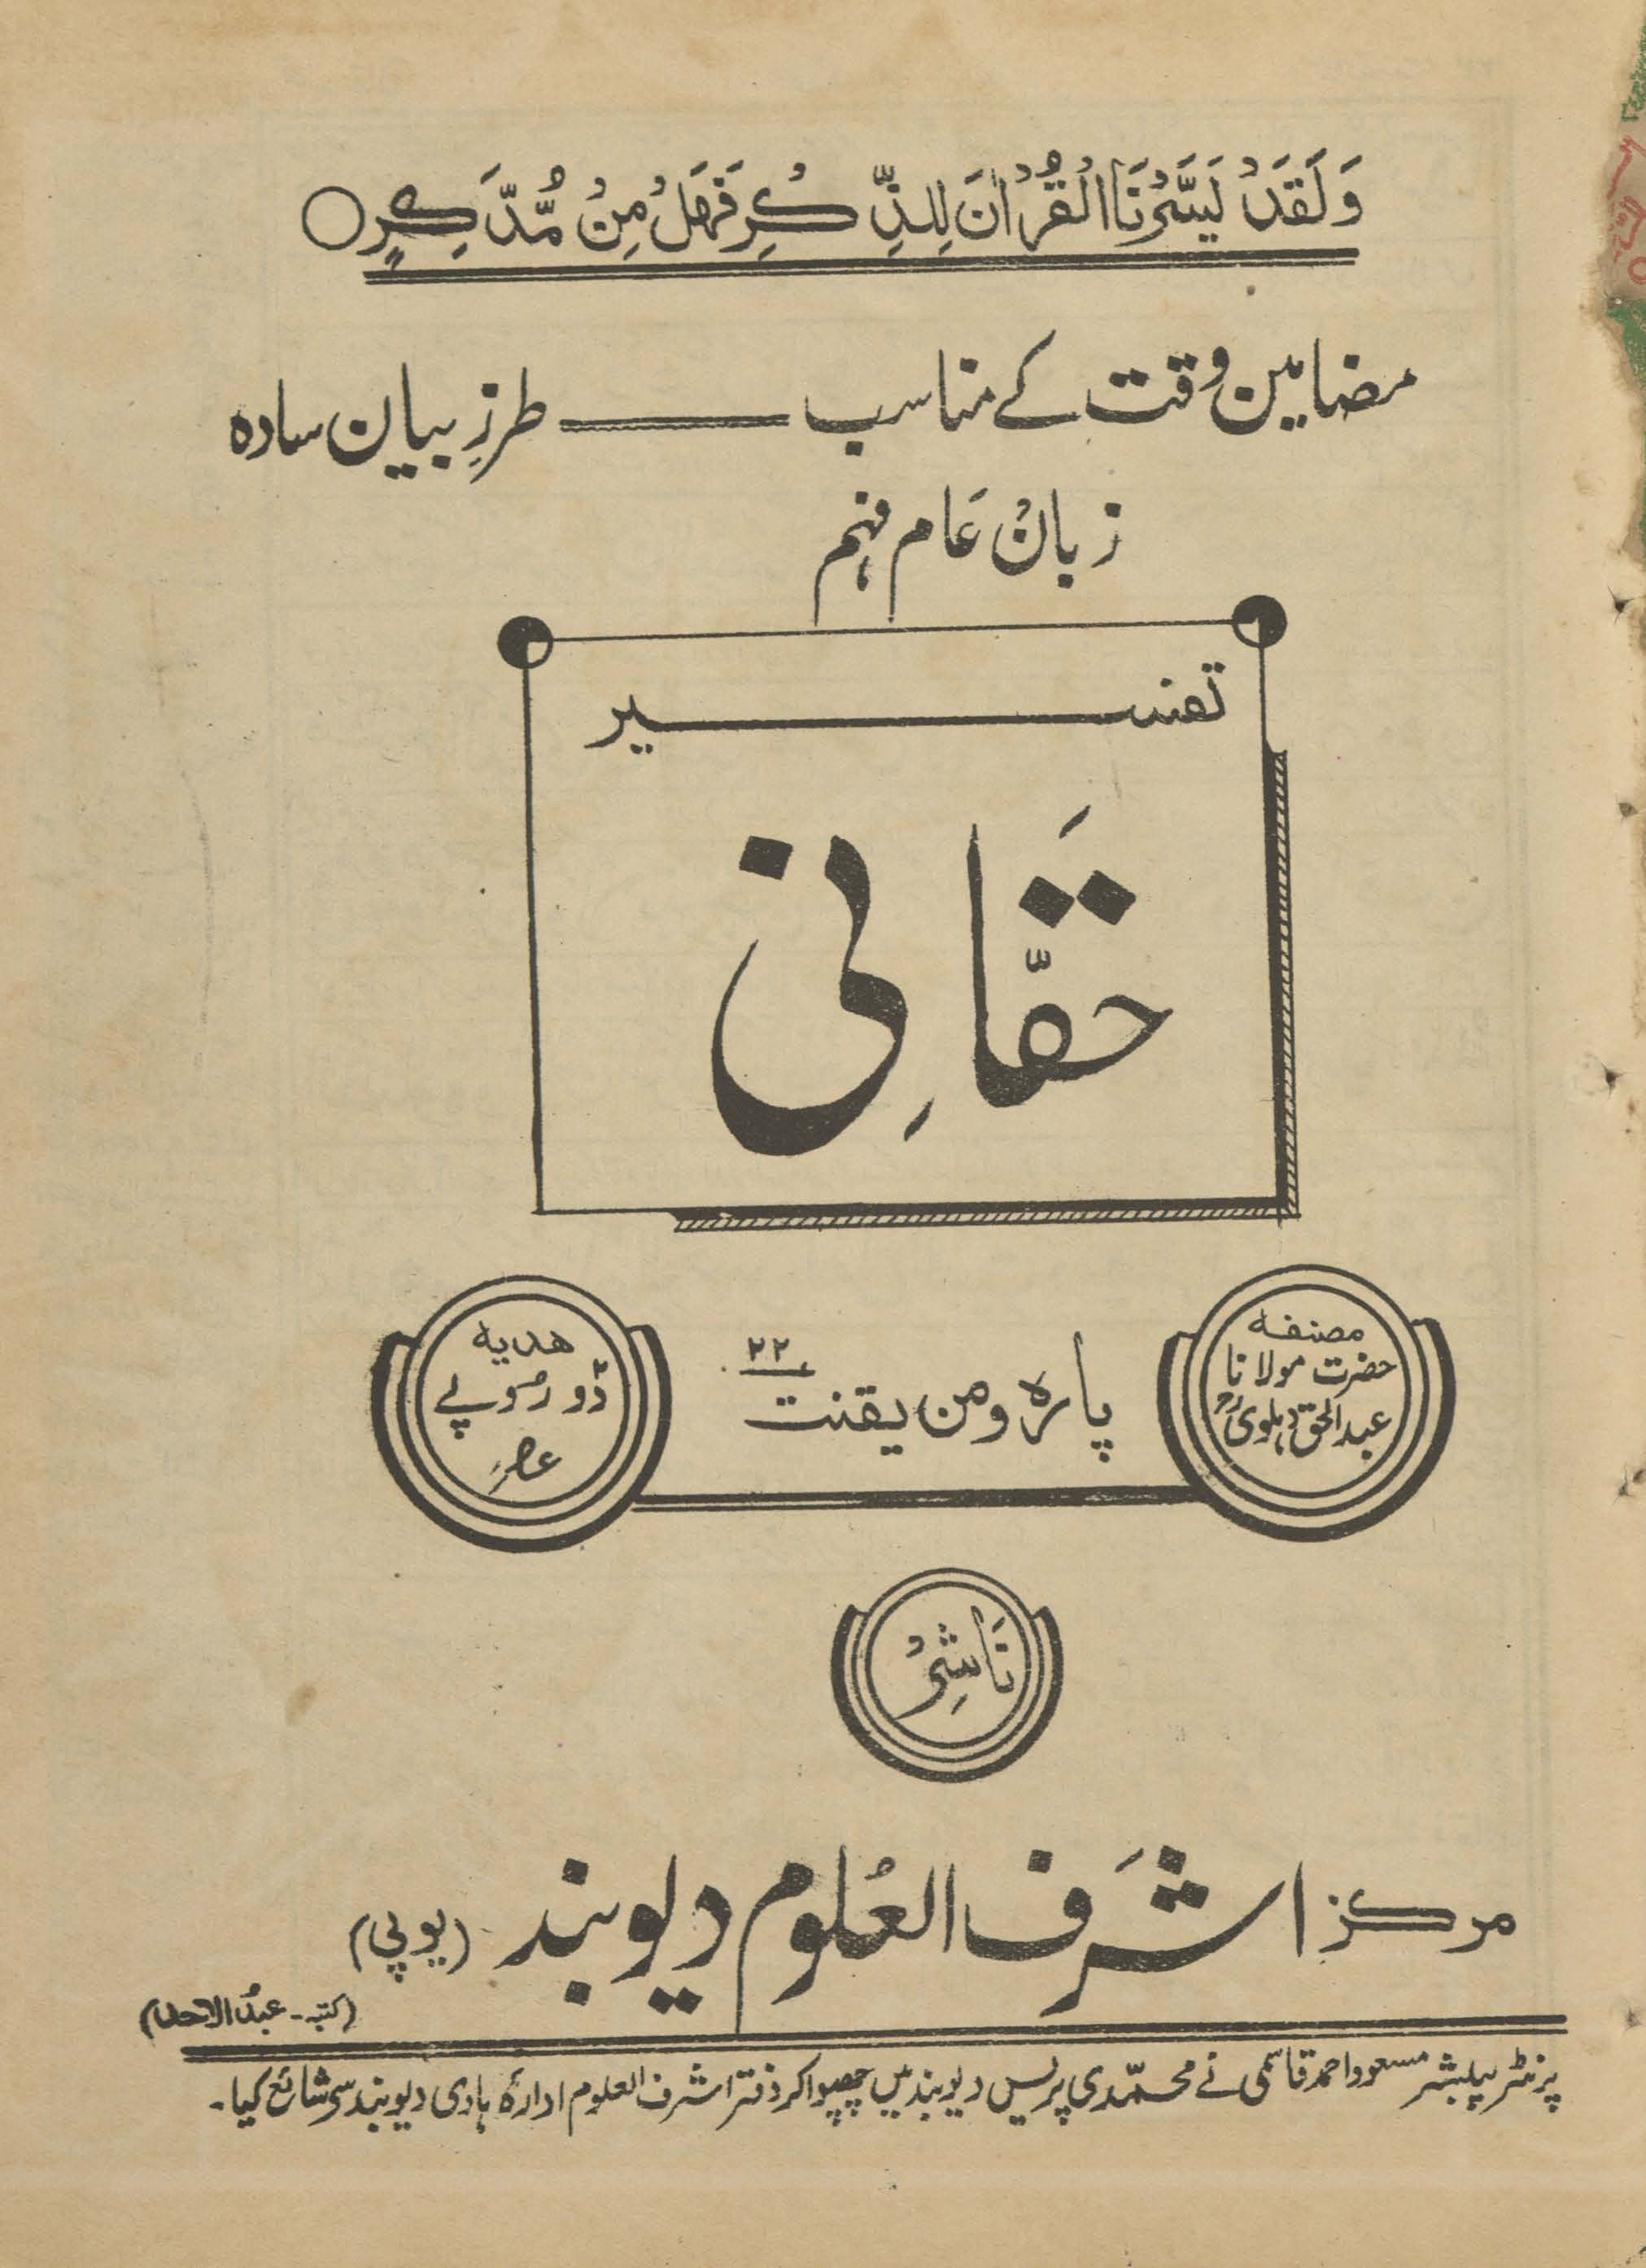 وَلَقَدْ يَسَّرْنَا الْقُرْاٰنَ لِلذِّكْرِ فَهَلْ مِنْ مُّدَّكِرٍ
مضامین وقت کے مناسب ــــ طرزِ بیان سادہ
زبان عام فہم
تفسیر
حقّانی
مصنفہ
حضرت مولانا
عبدالحق دہلویؒ
پارہ ومن یقنت ۲۲
ھدیہ
دو روپے
ناشر
مرکز اشرف العلوم دیوبند (یوپی)
(کتبہ - عبدالاحد)
پرنٹر پبلشر مسعود احمد قاسمی نے محمدی پریس دیوبند میں چھپوا کر دفتر اشرف العلوم ادارۂ ہادی دیوبند سی شائع کیا۔